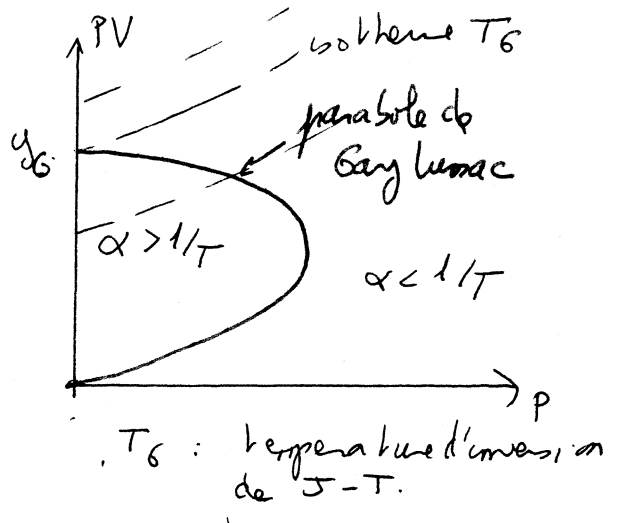 PV
isotherme T_G
parabole de
Gay Lussac
y_G
α > 1/T
α < 1/T
P
. T_G : température d'inversion
de J-T.